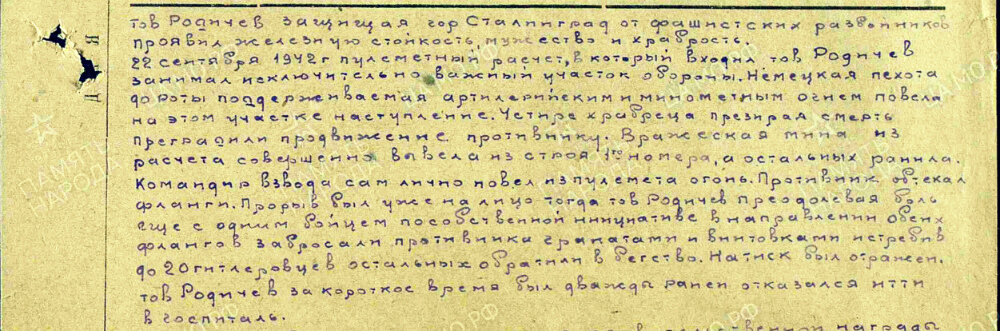 тов Родичев защищая гор Сталинград от фашистских разбойников
проявил железную стойкость, мужество и храбрость.
22 сентября 1942 г пулеметный расчет, в который входил тов Родичев
занимал исключительно важный участок обороны. Немецкая пехота
до роты поддерживаемая артилерийским и минометным огнем повела
на этом участке наступление. Четыре храбреца презирая смерть
преградили продвижение противнику. Вражеская мина из
расчета совершенно вывела из строя номера, а остальных ранила.
Командир взвода сам лично повел из пулемета огонь. Противник обтекал
фланги. Прорыв был уже на лицо тогда тов Родичев преодолевая боль
еще с одним бойцем по собственной инициативе в направлении обеих
флангов забросали противника гранатами и винтовками истребив
до 20 гитлеровцев остальных обратили в бегство. Натиск был отражен.
тов Родичев за короткое время был дважды ранен отказался итти
в госпиталь.
награды